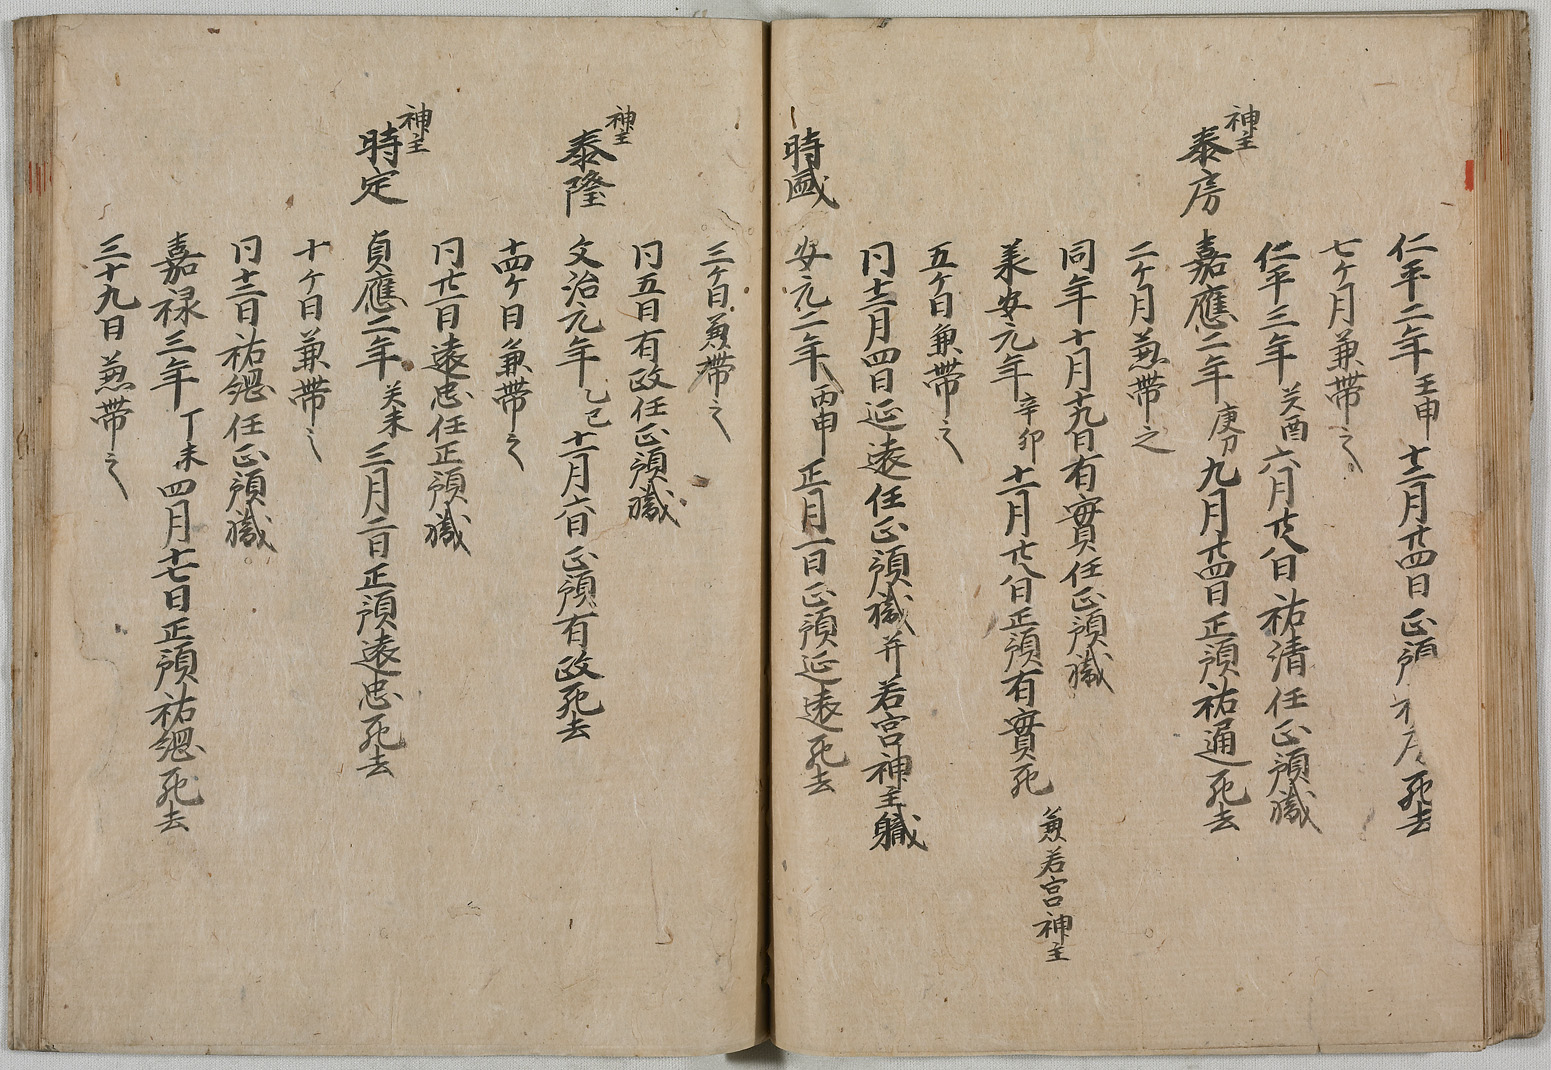 仁平二年壬申十二月廿四日正預
死去
七ケ月兼帯之
仁平三年癸酉六月廿八日祐清任正預職
神主
泰房
嘉應二年庚刁九月廿四日正預祐通死去
二ケ月兼帯之
同年十月十九日有實任正預職
美安元年辛卯十二月廿八日正預有實死
兼若宮神主
五ケ日兼帯之
同十二月四日延遠任正預職并若宮神主職
時盛
安元二年丙申正月一日正預延遠死去
三ケ日兼帯之
同五日有政任正預職
神主
泰隆
文治元年乙巳十二月六日正預有政死去
十四ケ日兼帯之
同廿一日遠忠任正預職
神主
時定
貞應二年癸未三月二日正預遠忠死去
十ケ日兼帯之
同十二日祐緫任正預職
嘉禄三年丁未四月十七日正預祐緫死去
三十九日兼帯之